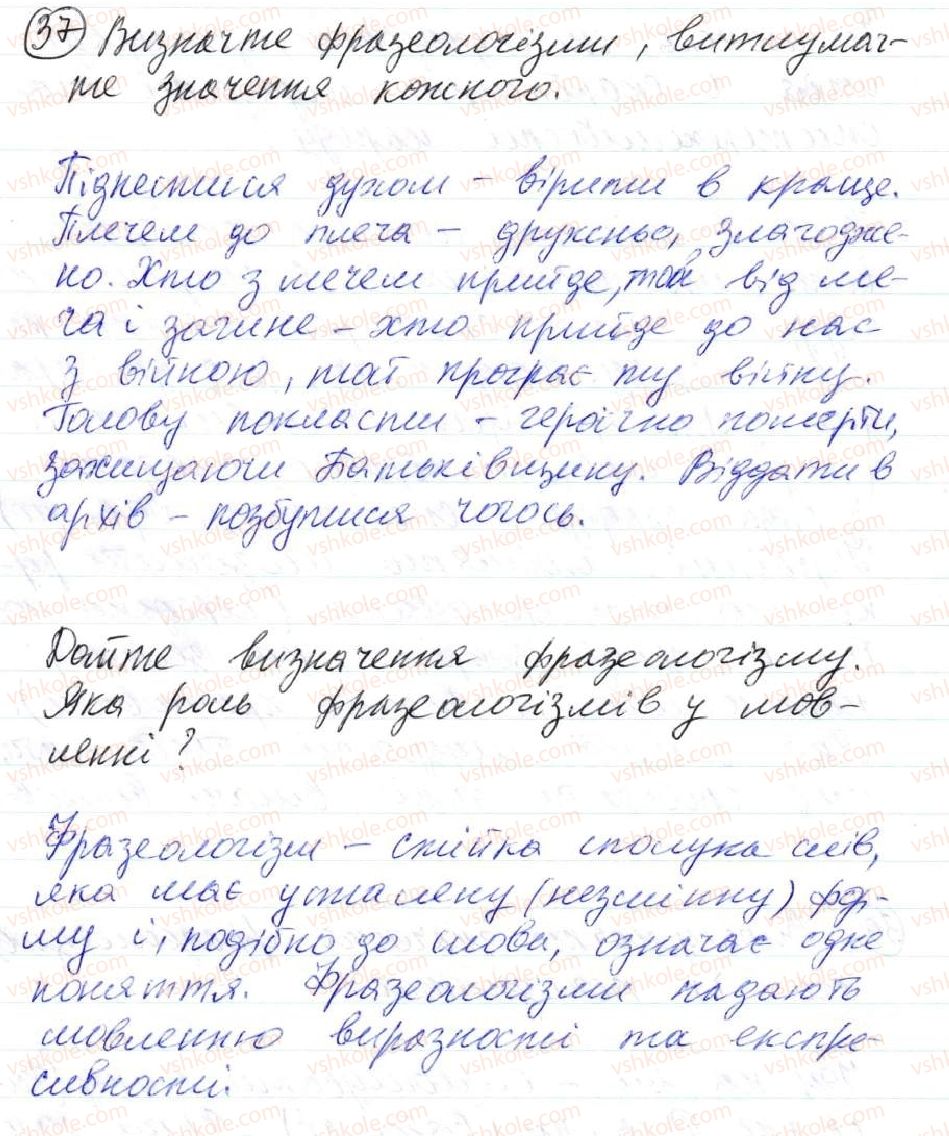 37 Визначте фразеологізми, витлумач-
те значення кожного.
Піднестися духом – вірити в краще.
Плечем до плеча – дружньо, злагодже-
но. Хто з мечем прийде, той від ме-
ча і загине – хто прийде до нас
з війною, той програє ту війну.
Голову покласти – героїчно померти,
захищаючи Батьківщину. Віддати в
архів – позбутися чогось.
Дайте визначення фразеологізму.
Яка роль фразеологізмів у мов-
ленні?
Фразеологізм – стійка сполука слів,
яка має усталену (незмінну) фор-
му і, подібно до слова, означає одне
поняття. Фразеологізми надають
мовленню виразності та експре-
сивності.